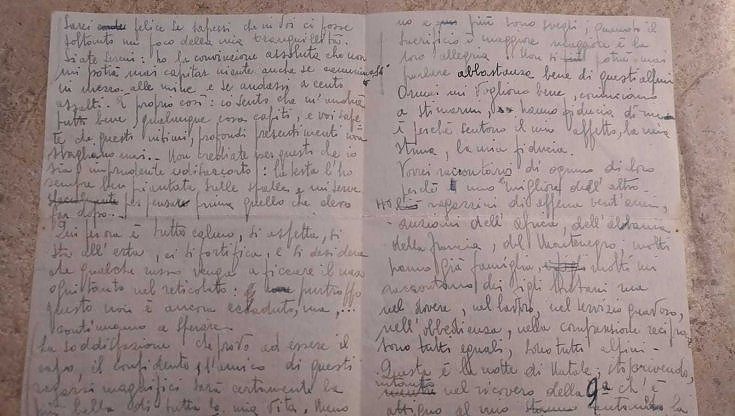 Sarei felice se sapessi che in voi ci fosse
soltanto un poco della mia tranquillità.
Siate sereni: ho la convinzione assoluta che non
mi potrà mai capitar niente anche se camminassi
in mezzo alle mine e se andassi a cento
assalti. È proprio così: io sento che m'andrà
tutto bene, qualunque cosa capiti, e voi sape-
te che questi intimi, profondi presentimenti non
sbagliano mai. Non crediate per questo che io
sia imprudente o
sempre ben piantata sulle spalle e mi serve
per pensare prima quello che devo
far dopo.
Qui finora è tutto calmo, si aspetta, si
sta all'erta, ci si fortifica, e si desidera
che qualche russo venga a ficcare il naso
ogni tanto nel reticolato: purtroppo
questo non è ancora accaduto, ma....
continuiamo a sperare.
La soddisfazione che provo ad essere il
capo, il confidente, l'amico di questi
ragazzi magnifici sarà certamente la
più bella di tutta la mia vita. Meno
no e più sono svegli, quanto il
sacrificio è maggiore maggiore è la
loro allegria. Non si potrà mai
parlare abbastanza bene di questi alpini.
Ormai mi vogliono bene, cominciano
a stimarmi, hanno fiducia di me
è perché sentono il mio affetto, la mia
stima, la mia fiducia.
Vorrei raccontarvi di ognuno di loro
perché uno migliore dell'altro.
Ho ragazzini di appena vent'anni,
anziani dell'Africa, dell'Albania
della Francia, del Montenegro: molti
hanno già famiglia, molti mi
raccontano dei figli lontani ma
nel dovere, nel lavoro, nel servizio gravoso,
nell'obbedienza, nella comprensione recipro
sono tutti eguali, sono tutti alpini.
Questa è la notte di Natale; sto scrivendo,
nel ricovero della 9ª ch'è
attiguo al mio stanno cantando. I